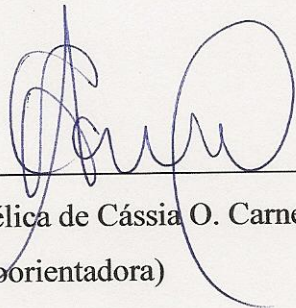 élica de Cássia O. Carne
orientadora)